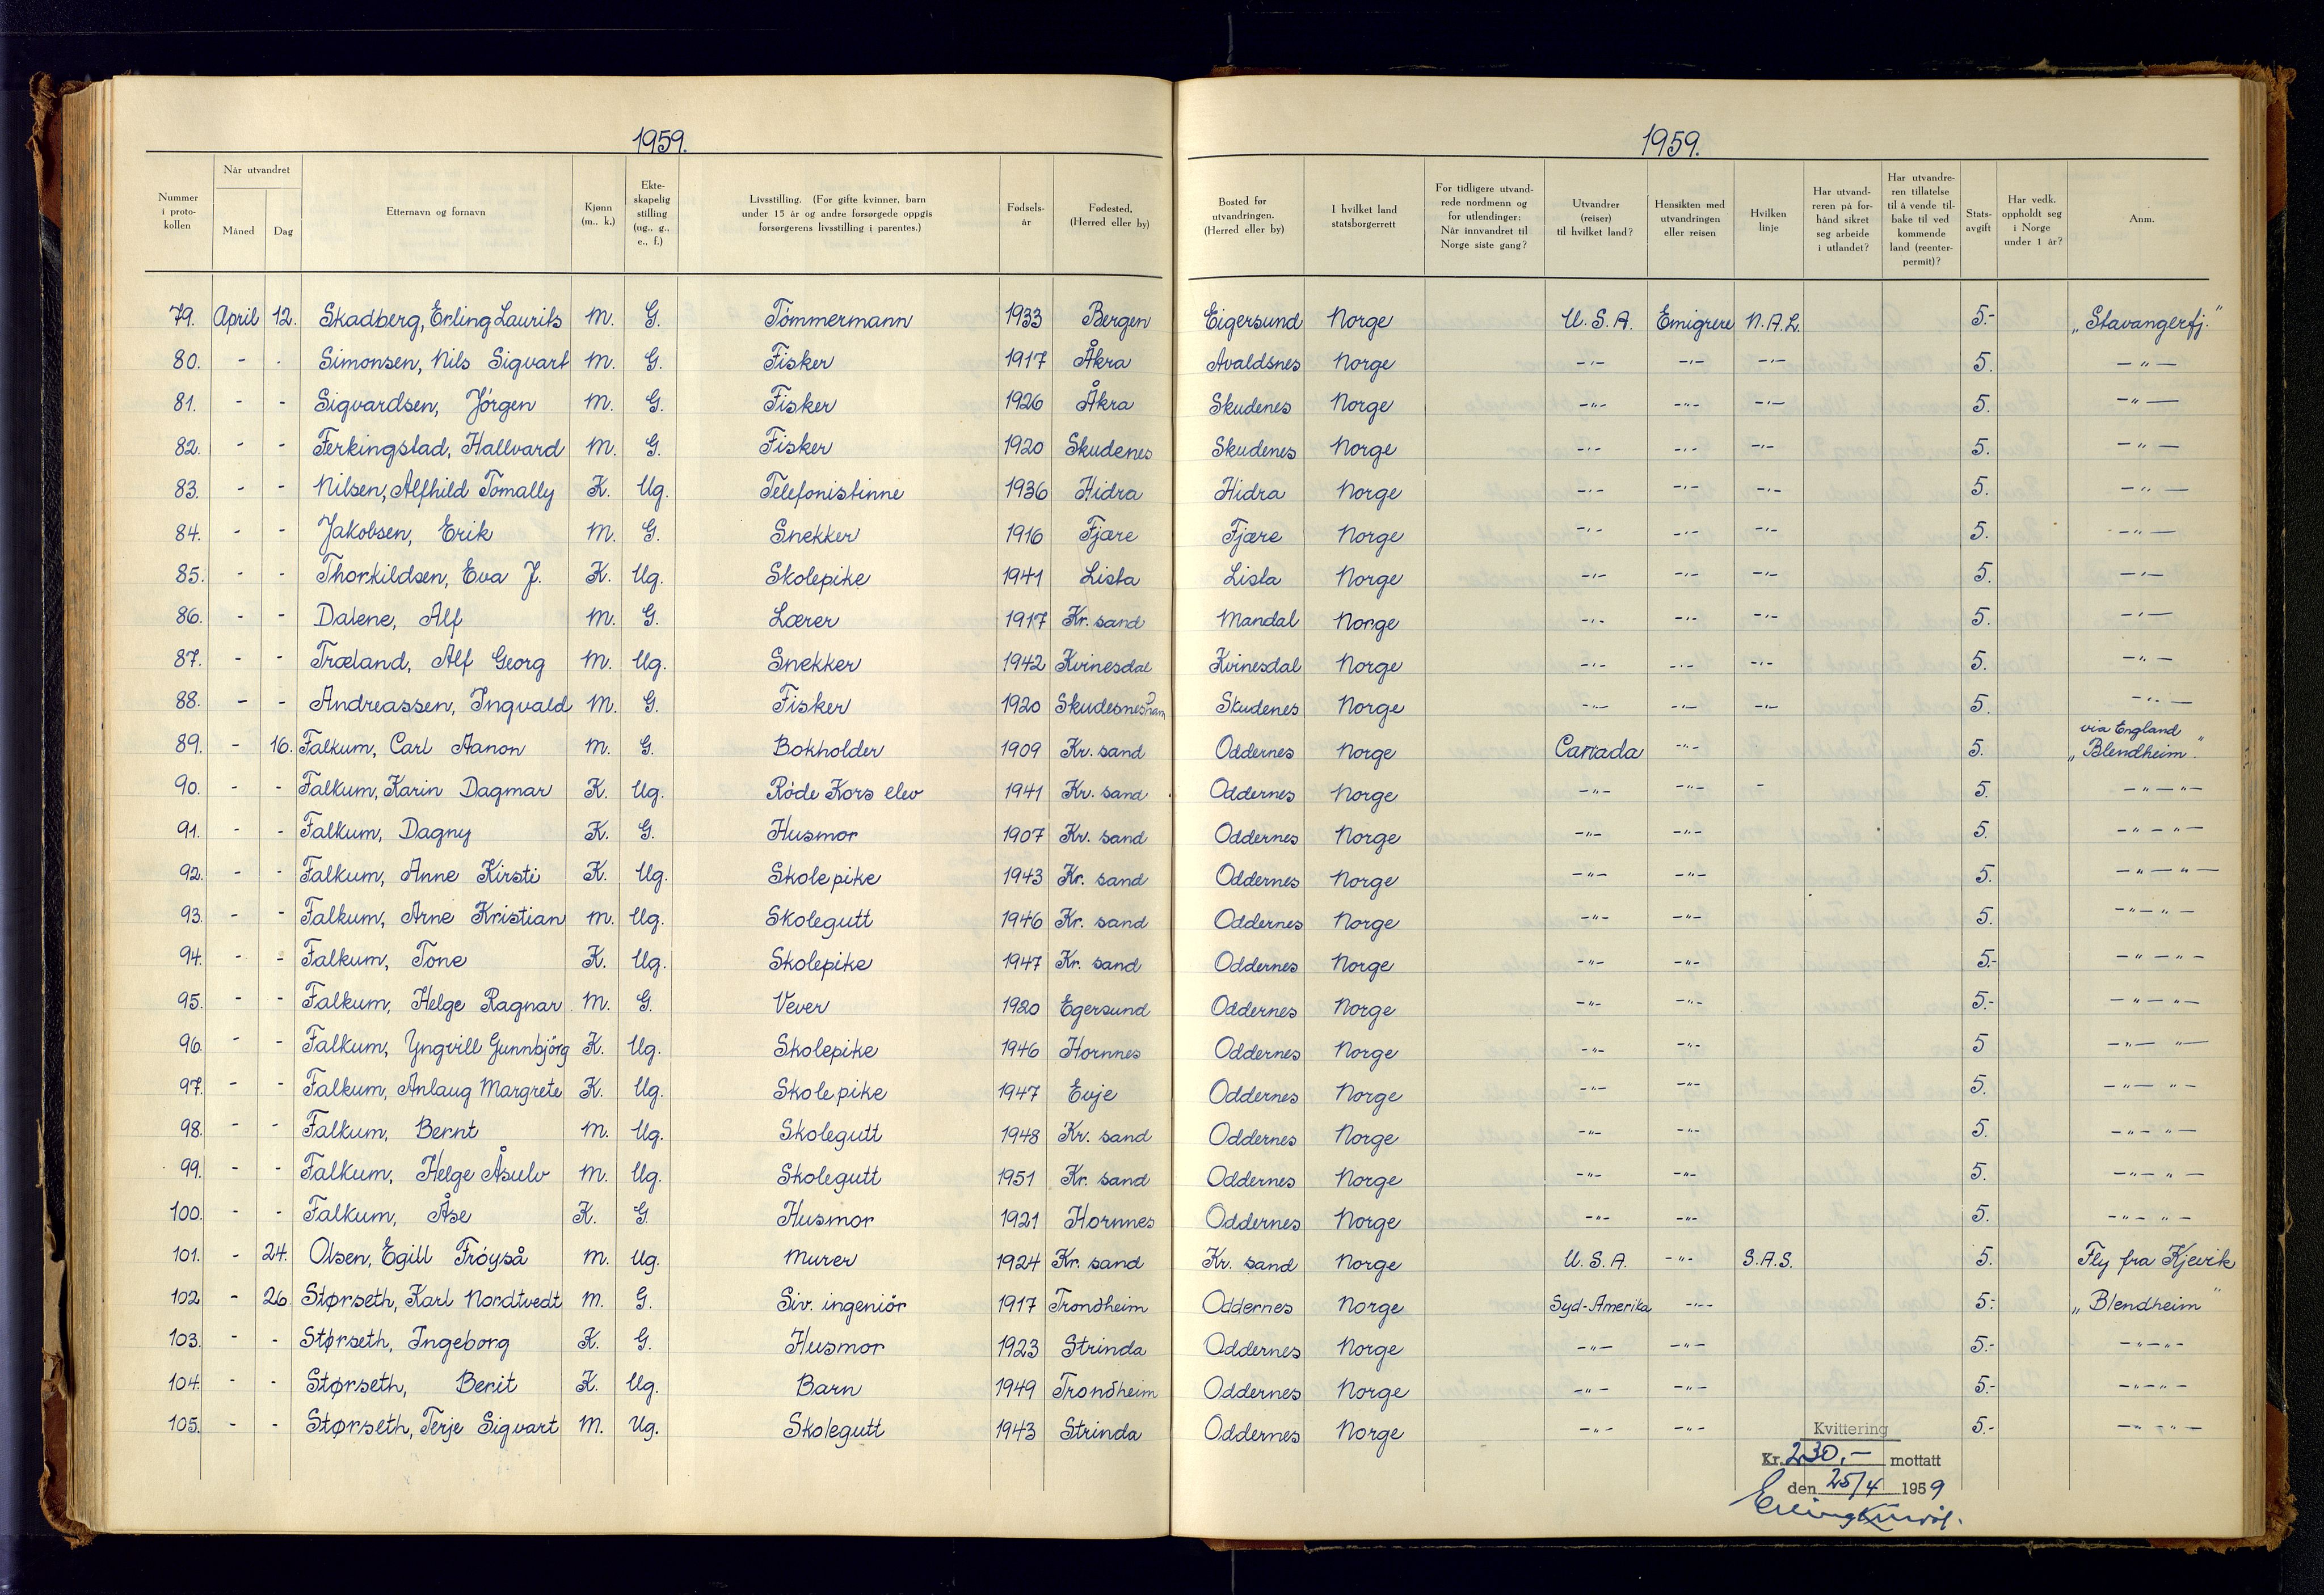 1959.
1959.
Nummer i proto-kollen | Når utvandret Måned | Dag | Etternavn og fornavn | Kjønn (m., k.) | Ekte-skapelig stilling (ug., g., e., f.) | Livsstilling. (For gifte kvinner, barn under 15 år og andre forsørgede oppgis forsørgerens livsstilling i parentes.) | Fødsels-år | Fødested. (Herred eller by) | Bosted før utvandringen. (Herred eller by) | I hvilket land statsborgerrett | For tidligere utvand-rede nordmenn og for utlendinger: Når innvandret til Norge siste gang? | Utvandrer (reiser) til hvilket land? | Hensikten med utvandringen eller reisen | Hvilken linje | Har utvand-reren på for-hånd sikret seg arbeide i utlandet? | Har utvandre-ren tillatelse til å vende til-bake til ved kommende land (reenter-permit)? | Stats-avgift | Har vedk. oppholdt seg i Norge under 1 år? | Anm.
79. April 12. Skadberg, Erling Laurits M. G. Tömmermann 1933 Bergen Eigersund Norge U.S.A. Emigrere N.A.L. 5.- „Stavangerfj."
80. - - Simonsen, Nils Sigvart M. G. Fisker 1917 Åkra Avaldsnes Norge -"- -"- -"- 5. -"-
81. - - Sigvardsen, Jörgen M. G. Fisker 1926 Åkra Skudenes Norge -"- -"- -"- 5. -"-
82. - - Ferkingstad, Hallvard M. G. Fisker 1920 Skudenes Skudenes Norge -"- -"- -"- 5. -"-
83. - - Nilsen, Alfhild Tomally K. Ug. Telefonistinne 1936 Hidra Hidra Norge -"- -"- -"- 5. -"-
84. - - Jakobsen, Erik M. G. Snekker 1916 Fjære Fjære Norge -"- -"- -"- 5. -"-
85. - - Thorkildsen, Eva J. K. Ug. Skolepike 1941 Lista Lista Norge -"- -"- -"- 5. -"-
86. - - Dalene, Alf M. G. Lærer 1917 Kr. sand Mandal Norge -"- -"- -"- 5. -"-
87. - - Træland, Alf Georg M. Ug. Snekker 1942 Kvinesdal Kvinesdal Norge -"- -"- -"- 5. -"-
88. - - Andreassen, Ingvald M. G. Fisker 1920 Skudesneshavn Skudenes Norge -"- -"- -"- 5. -"-
89. - 16. Falkum, Carl Aanon M. G. Bokholder 1909 Kr. sand Oddernes Norge Canada -"- 5. via England „Blendheim"
90. - - Falkum, Karin Dagmar K. Ug. Röde Kors elev 1941 Kr. sand Oddernes Norge -"- -"- - 5. -"-"-
91. - - Falkum, Dagny K. G. Husmor 1907 Kr. sand Oddernes Norge -"- -"- 5. -"-"-
92. - - Falkum, Anne Kirsti K. Ug. Skolepike 1943 Kr. sand Oddernes Norge -"- -"- 5. -"-"-
93. - - Falkum, Arne Kristian M. Ug. Skolegutt 1946 Kr. sand Oddernes Norge -"- -"- 5. -"-"-
94. - - Falkum, Tone K. Ug. Skolepike 1947 Kr. sand Oddernes Norge -"- -"- 5.- -"-"-
95. - - Falkum, Helge Ragnar M. G. Vever 1920 Egersund Oddernes Norge -"- -"- 5.- -"-"-
96. - - Falkum, Yngvill Gunnbjörg K. Ug. Skolepike 1946 Hornnes Oddernes Norge -"- -"- 5 -"-"-
97. - - Falkum, Anlaug Margrete K. Ug. Skolepike 1947 Evje Oddernes Norge -"- -"- 5. -"-"-
98. - - Falkum, Bernt M. Ug. Skolegutt 1948 Kr. sand Oddernes Norge -"- -"- 5. -"-"-
99. - - Falkum, Helge Åsulv M. Ug. Skolegutt 1951 Kr. sand Oddernes Norge -"- -"- 5. -"-"-
100. - - Falkum, Åse K. G. Husmor 1921 Hornnes Oddernes Norge -"- -"- 5. -"-"-
101. - 24. Olsen, Egill Fröyså M. Ug. Murer 1924 Kr. sand Kr. sand Norge U.S.A. -"- S.A.S. 5. Fly fra Kjevik
102 - 26. Størseth, Karl Nordtvedt M. G. Siv. ingeniör 1917 Trondheim Oddernes Norge Syd-Amerika -"- 5.- „Blendheim"
103. - - Størseth, Ingeborg K. G. Husmor 1923 Strinda Oddernes Norge -"- -"- 5.- -"-"-
104. - - Størseth, Berit K. Ug. Barn 1949 Trondheim Oddernes Norge -"- -"- 5.- -"-"-
105. - - Størseth, Terje Sigvart M. Ug. Skolegutt 1943 Strinda Oddernes Norge -"- -"- 5.- -"-"-
Kvittering
Kr. 230,- mottatt
den 25/4 1959
Erling